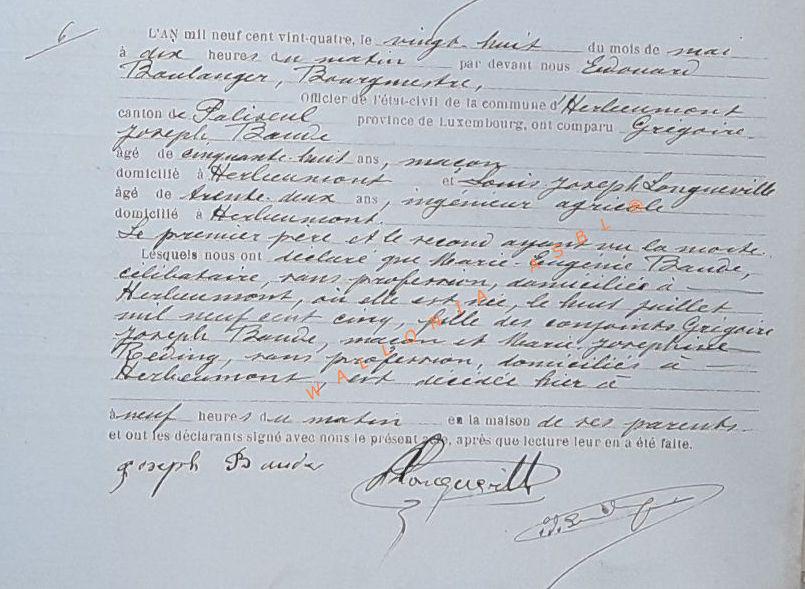 6
L'AN mil neuf cent vint-quatre, le vingt-huit du mois de mai
à dix heures du matin par devant nous Edouard
Boulanger, Bourgmestre,
Officier de l'état-civil de la commune d'Herbeumont
canton de Paliseul province de Luxembourg, ont comparu Grégoire
Joseph Baude
âgé de cinquante-huit ans, maçon
domicilié à Herbeumont et Louis Joseph Longueville
âgé de trente-deux ans, ingénieur agricole
domicilié à Herbeumont.
Le premier père et le second ayant vu la morte.
Lesquels nous ont déclaré que Marie Eugénie Baude,
célibataire, sans profession, domiciliée à
Herbeumont, où elle est née, le huit juillet
mil neuf cent cinq, fille des conjoints Grégoire
Joseph Baude, maçon et Marie Josephine
Reding, sans profession, domiciliés à
Herbeumont, est décédée hier à
à neuf heures du matin en la maison de ses parents
et ont les déclarants signé avec nous le présent acte, après que lecture leur en a été faite.
Joseph Baude Longueville
WALLONIA ASBL ©